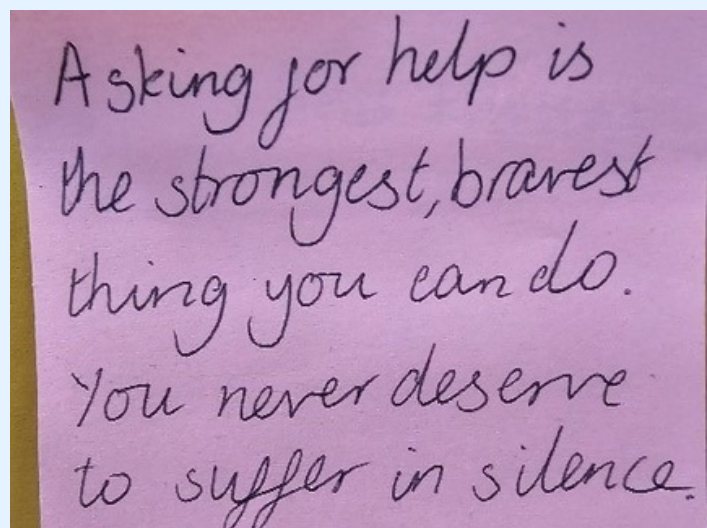 Asking for help is
the strongest, bravest
thing you can do.
You never deserve
to suffer in silence.